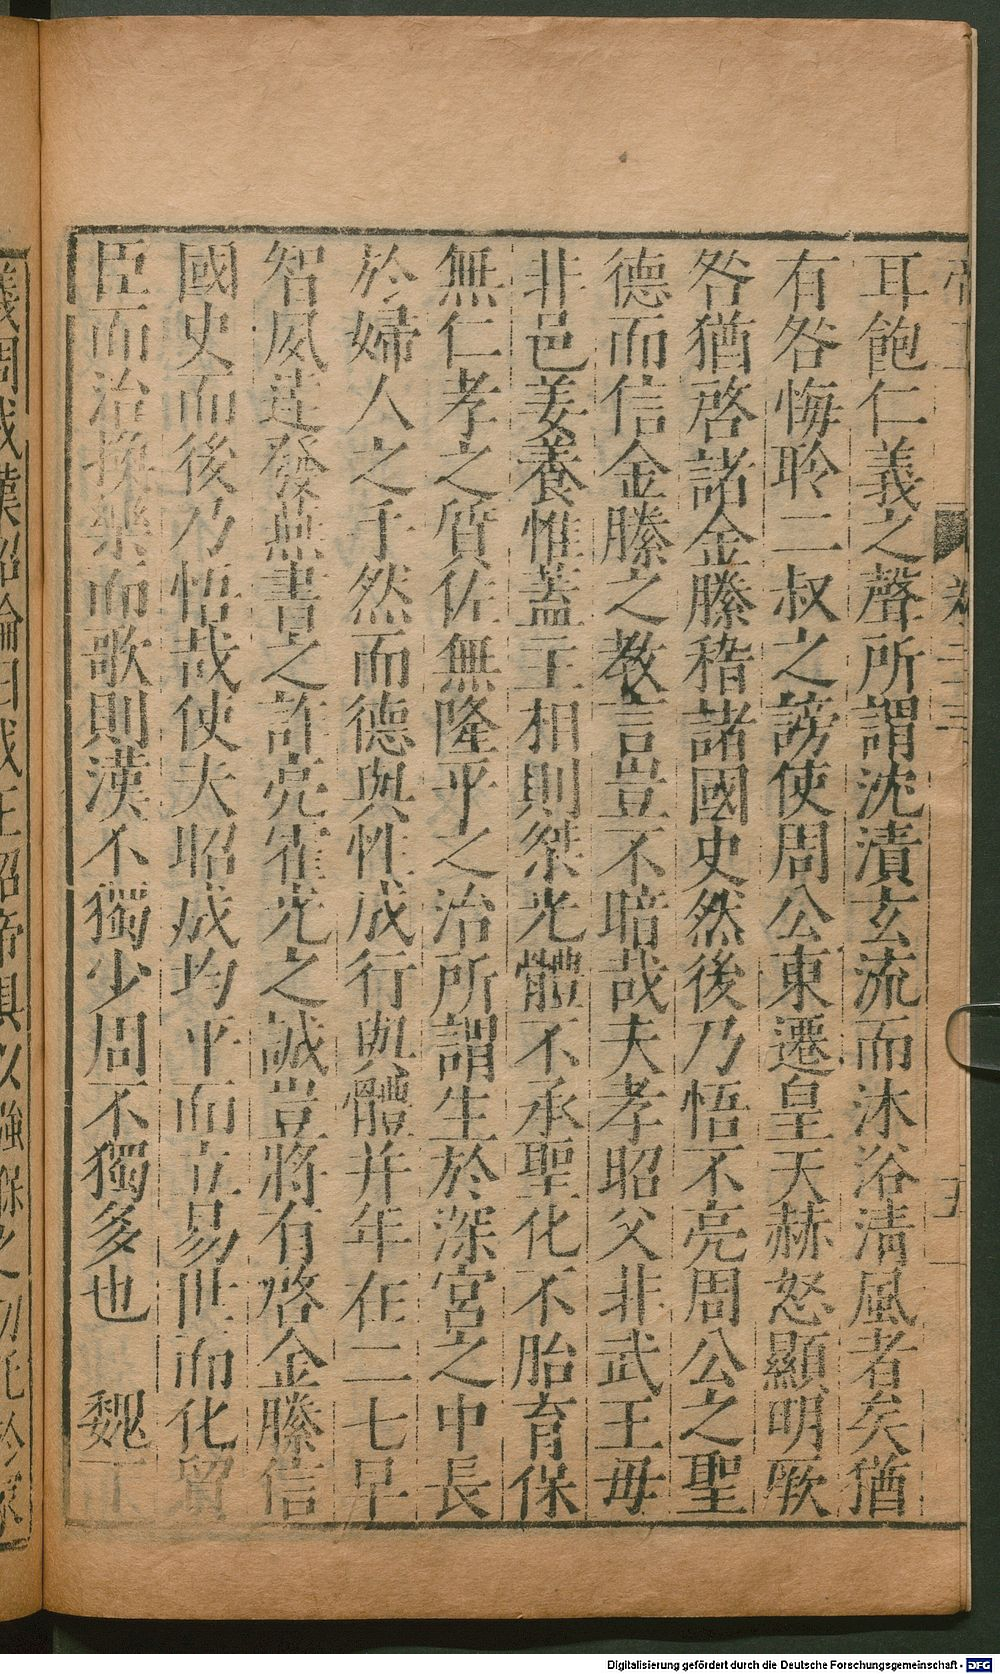 耳飽仁義之聲所謂沈漬玄流而沐浴清風者矣猶
有咎悔聆二叔之謗使周公東遷皇天赫怒顯明厥
咎猶啓諸金縢稽諸國史然後乃悟不亮周公之聖
德而信金縢之教言豈不暗哉夫孝昭父非武王母
非邑姜養惟蓋主相則桀光體不承聖化不胎育保
無仁孝之質佐無隆平之治所謂生於深宮之中長
於婦人之手然而德與性成行與體并年在二七早
智夙達發燕書之詐亮霍光之誠豈將有啓金縢信
國史而後乃悟哉使夫昭成均平而立易世而化貿
臣而治換樂而歌則漢不獨少周不獨多也　魏丁
卷
義周成漢昭論曰成王昭帝俱以襁褓之幼託於冢
Digitalisierung gefördert durch die Deutsche Forschungsgemeinschaft - DFG